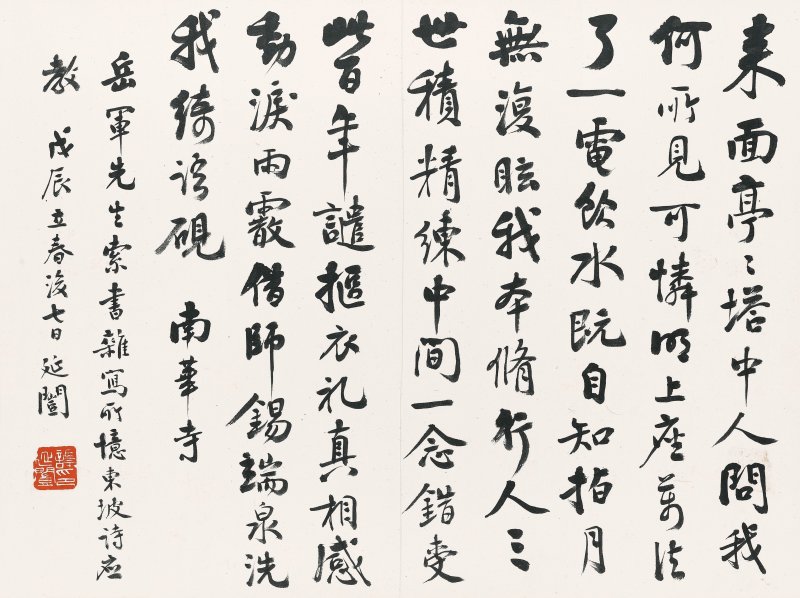 来面亭〻塔中人問我
何所見可憐明上座萬法
了一電飲水既自知指月
無復眩我本脩行人三
世積精練中間一念錯受
此百年譴摳衣礼真相感
動淚雨霰借師錫端泉洗
我綺語硯 南華寺
岳軍先生索書雜寫所憶東坡詩應
教 戊辰立春後七日延闓